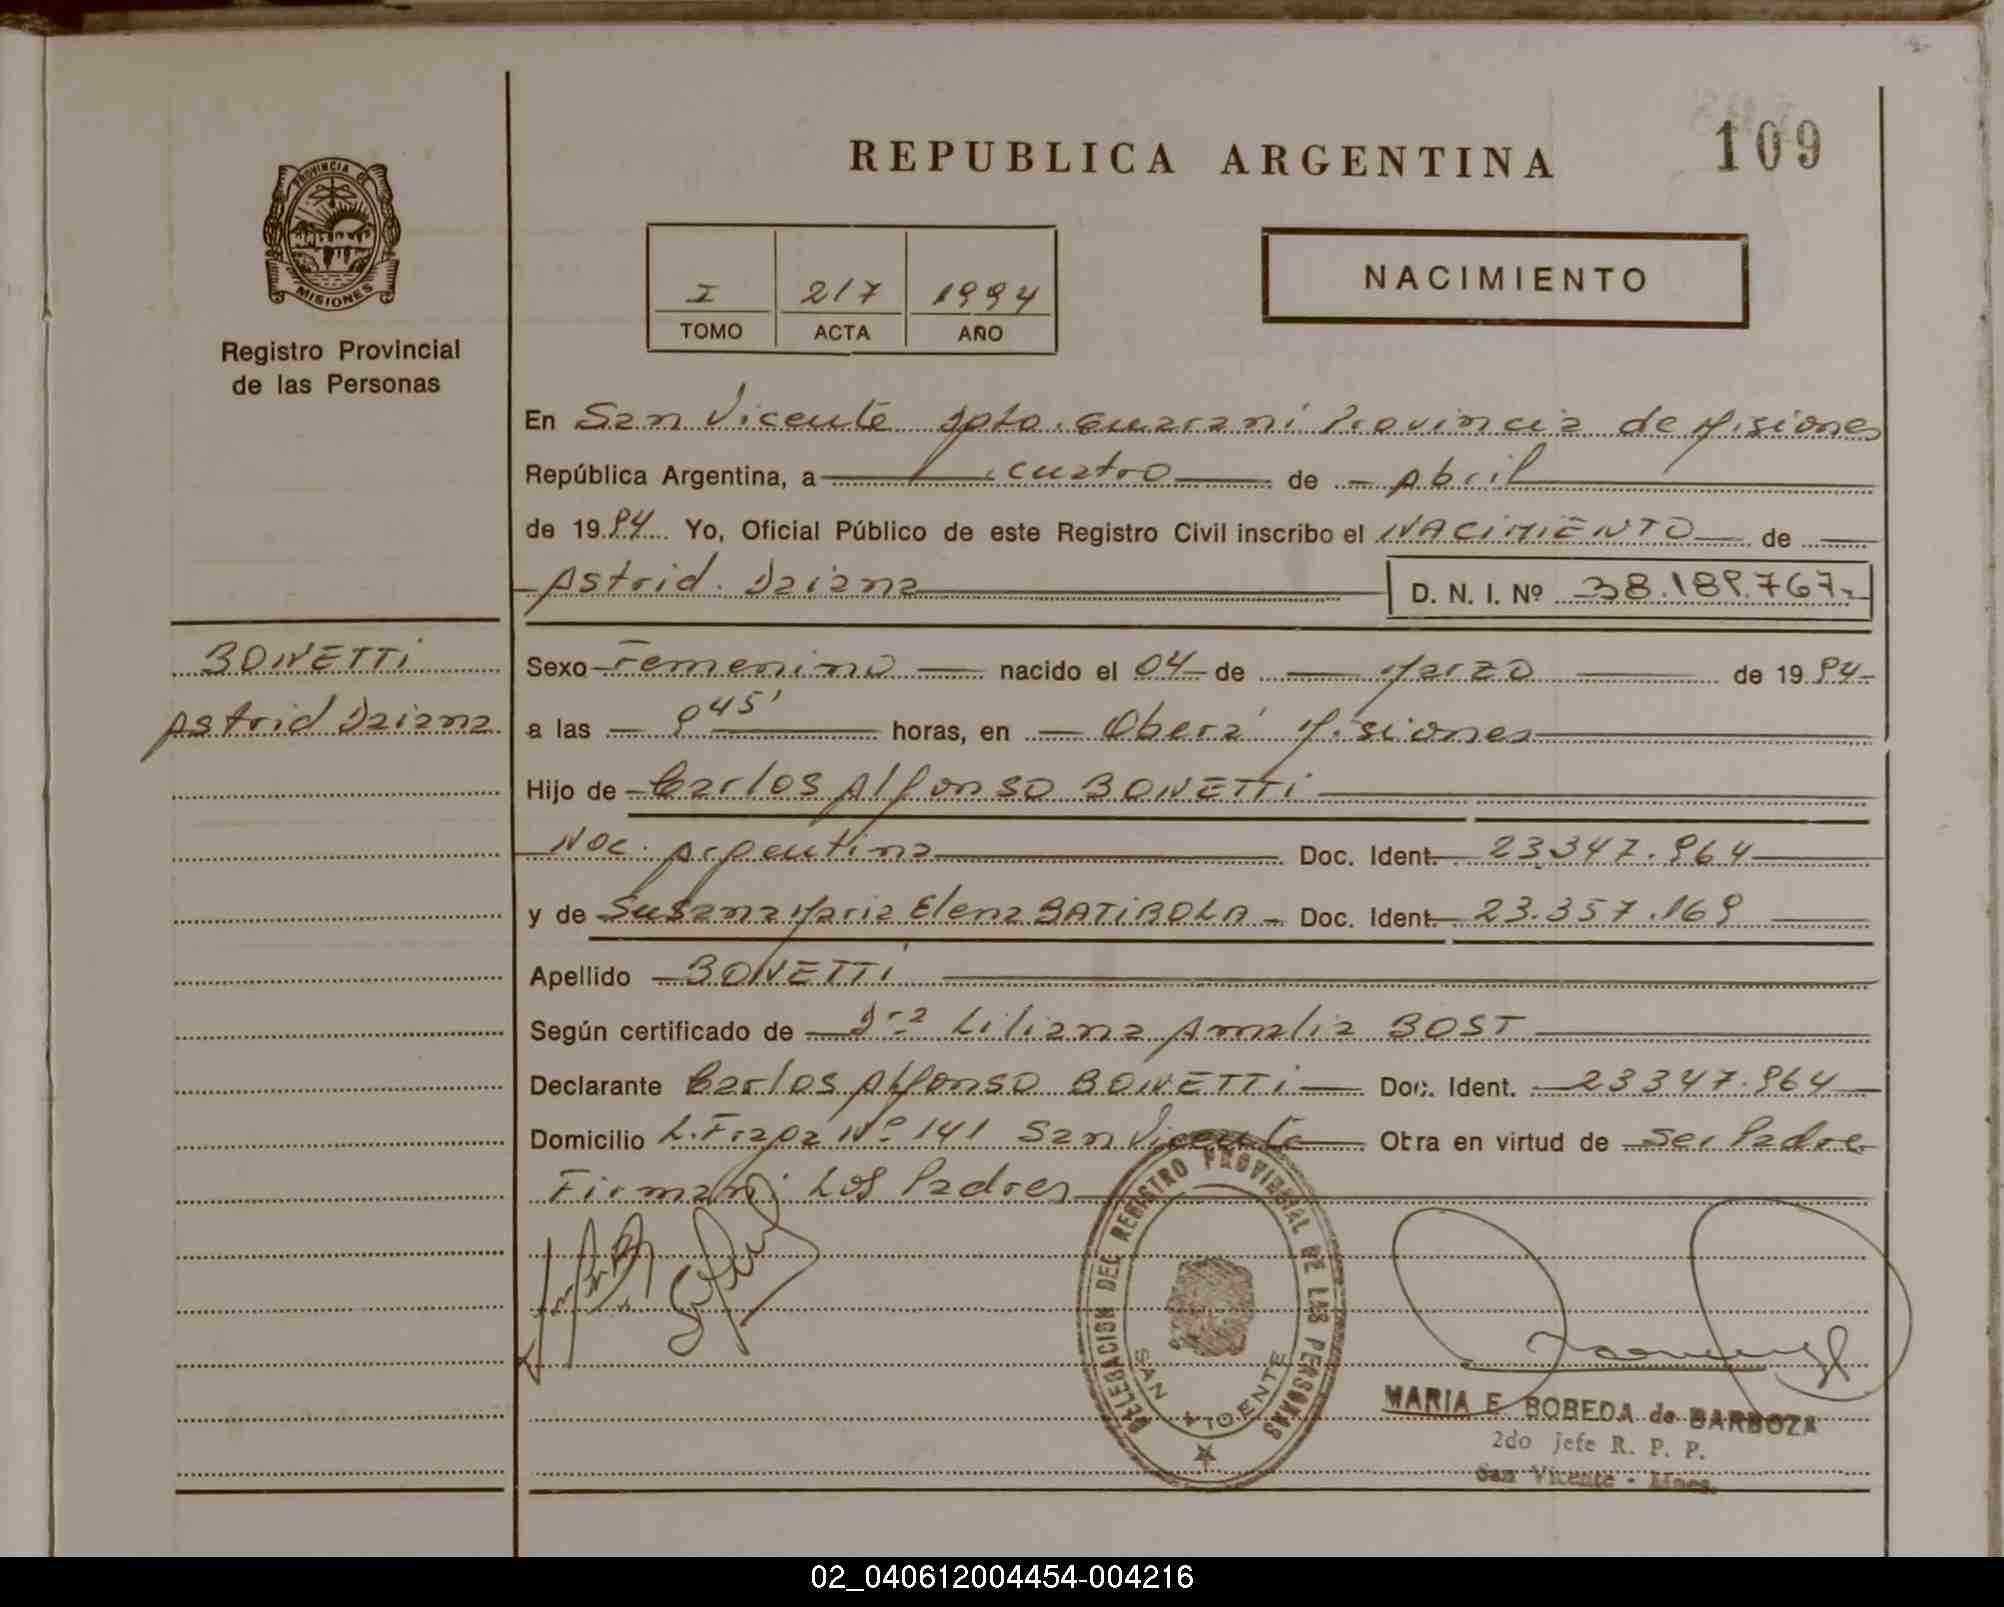 109
REPUBLICA ARGENTINA
PROVINCIA DE
MISIONES
Registro Provincial
de las Personas
I 217 1994
TOMO ACTA AÑO
NACIMIENTO
En San Vicente Dpto. Guarani Provincia de Misiones
República Argentina, a cuatro de Abril
de 1994 Yo, Oficial Público de este Registro Civil inscribo el NACIMIENTO de
Astrid Daiana D. N. I. Nº 38.189.767
BONETTI
Astrid Daiana
Sexo Femenino nacido el 04 de Marzo de 1994
a las 9 45' horas, en Oberá Misiones
Hijo de Carlos Alfonso BONETTI
Nac. Argentina Doc. Ident. 23.347.964
y de Susana Maria Elena BATIROLA Doc. Ident. 23.357.169
Apellido BONETTI
Según certificado de Dra Liliana Amalia BOST
Declarante Carlos Alfonso BONETTI Doc. Ident. 23347.964
Domicilio Nº 141 San Vicente Obra en virtud de ser Padre
Firman: Los Padres
DELEGACION DEL REGISTRO PROVINCIAL DE LAS PERSONAS
SAN VICENTE
MARIA E. BOBEDA de BARBOZA
2do Jefe R. P. P.
San Vicente - Mnes.
02_040612004454-004216